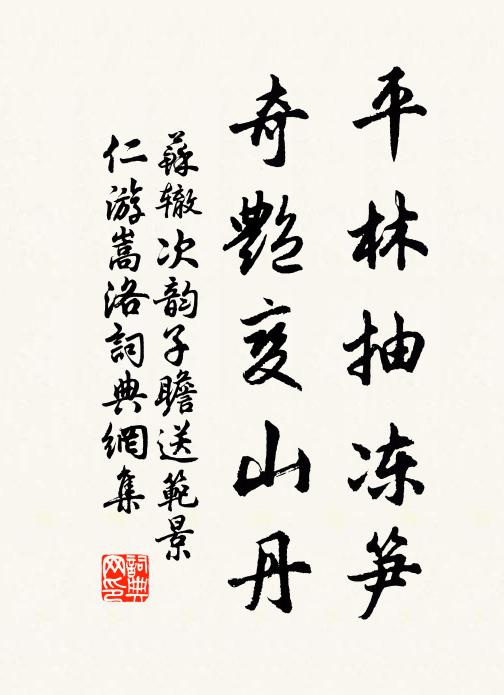 平林抽冻笋
奇艷变山丹
蘇辙次韵子瞻送範景
仁游嵩洛詞典網集
詞典网印